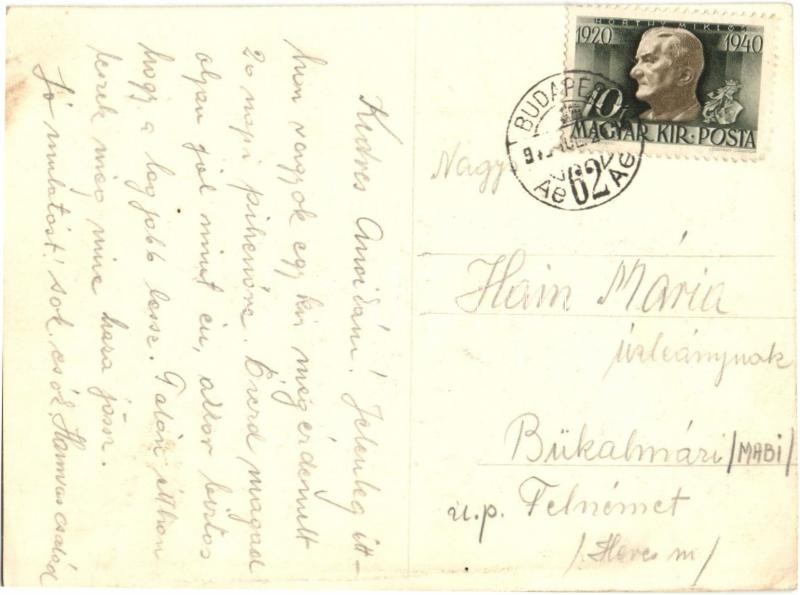 Kedves Anoikám! Jelenleg itt-
hon vagyok egy kis megérdemelt
20 napi pihenőre. Érezd magad
olyan jól mint én, akkor biztos
hogy a legjobb lesz. Talán itthon
leszek még mire haza jössz.
Jó mulatást! Sok csók, Hamvas család
HORTHY MIKLÓS
1920 1940
10
MAGYAR KIR. POSTA
BUDAPEST
62
Nagys
Hain Mária
úrleánynak
Bükalmári /MABI/
u.p. Felnémet
/Heves m/